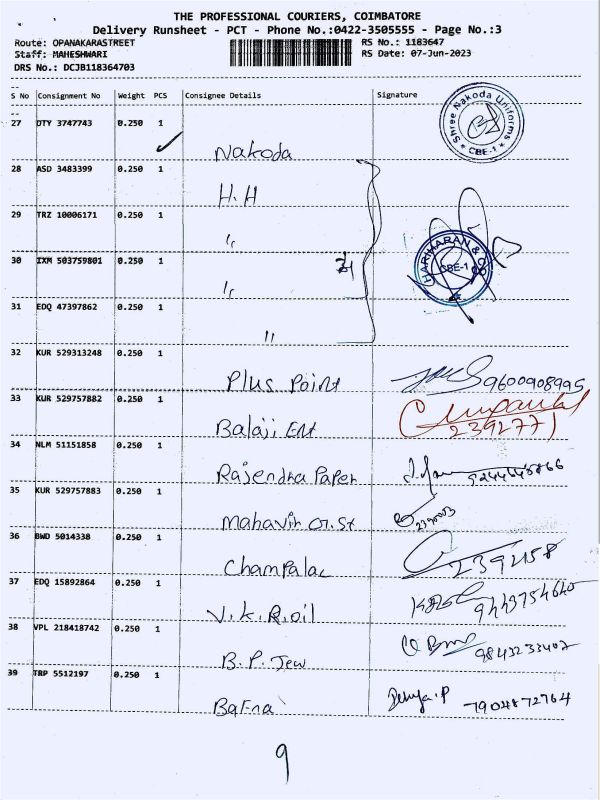 THE PROFESSIONAL COURIERS, COIMBATORE
Delivery Runsheet - PCT - Phone No.:0422-3505555 - Page No.:3
Route: OPANAKARASTREET RS No.: 1183647
Staff: MAHESHWARI RS Date: 07-Jun-2023
DRS No.: DCJB118364703
S No Consignment No Weight PCS Consignee Details Signature
27 DTY 3747743 0.250 1
Nakoda
Shree Nakoda Uniforms
* CBE-1 *
28 ASD 3483399 0.250 1
H.H
29 TRZ 10006171 0.250 1
"
30 IXM 503759801 0.250 1
"
HARIHARAN & CO
CBE-1
31 EDQ 47397862 0.250 1
"
32 KUR 529313248 0.250 1
Plus Point 9600908995
33 KUR 529757882 0.250 1
Balaji Ent 2392771
34 NLM 51151858 0.250 1
Rajendra Paper
35 KUR 529757883 0.250 1
Mahavir
36 BWD 5014338 0.250 1
Champalac 2392158
37 EDQ 15892864 0.250 1
V.K.R.oil
38 VPL 218418742 0.250 1
B.P. Jew 9843233402
39 TRP 5512197 0.250 1
Bafna 7904872764
9